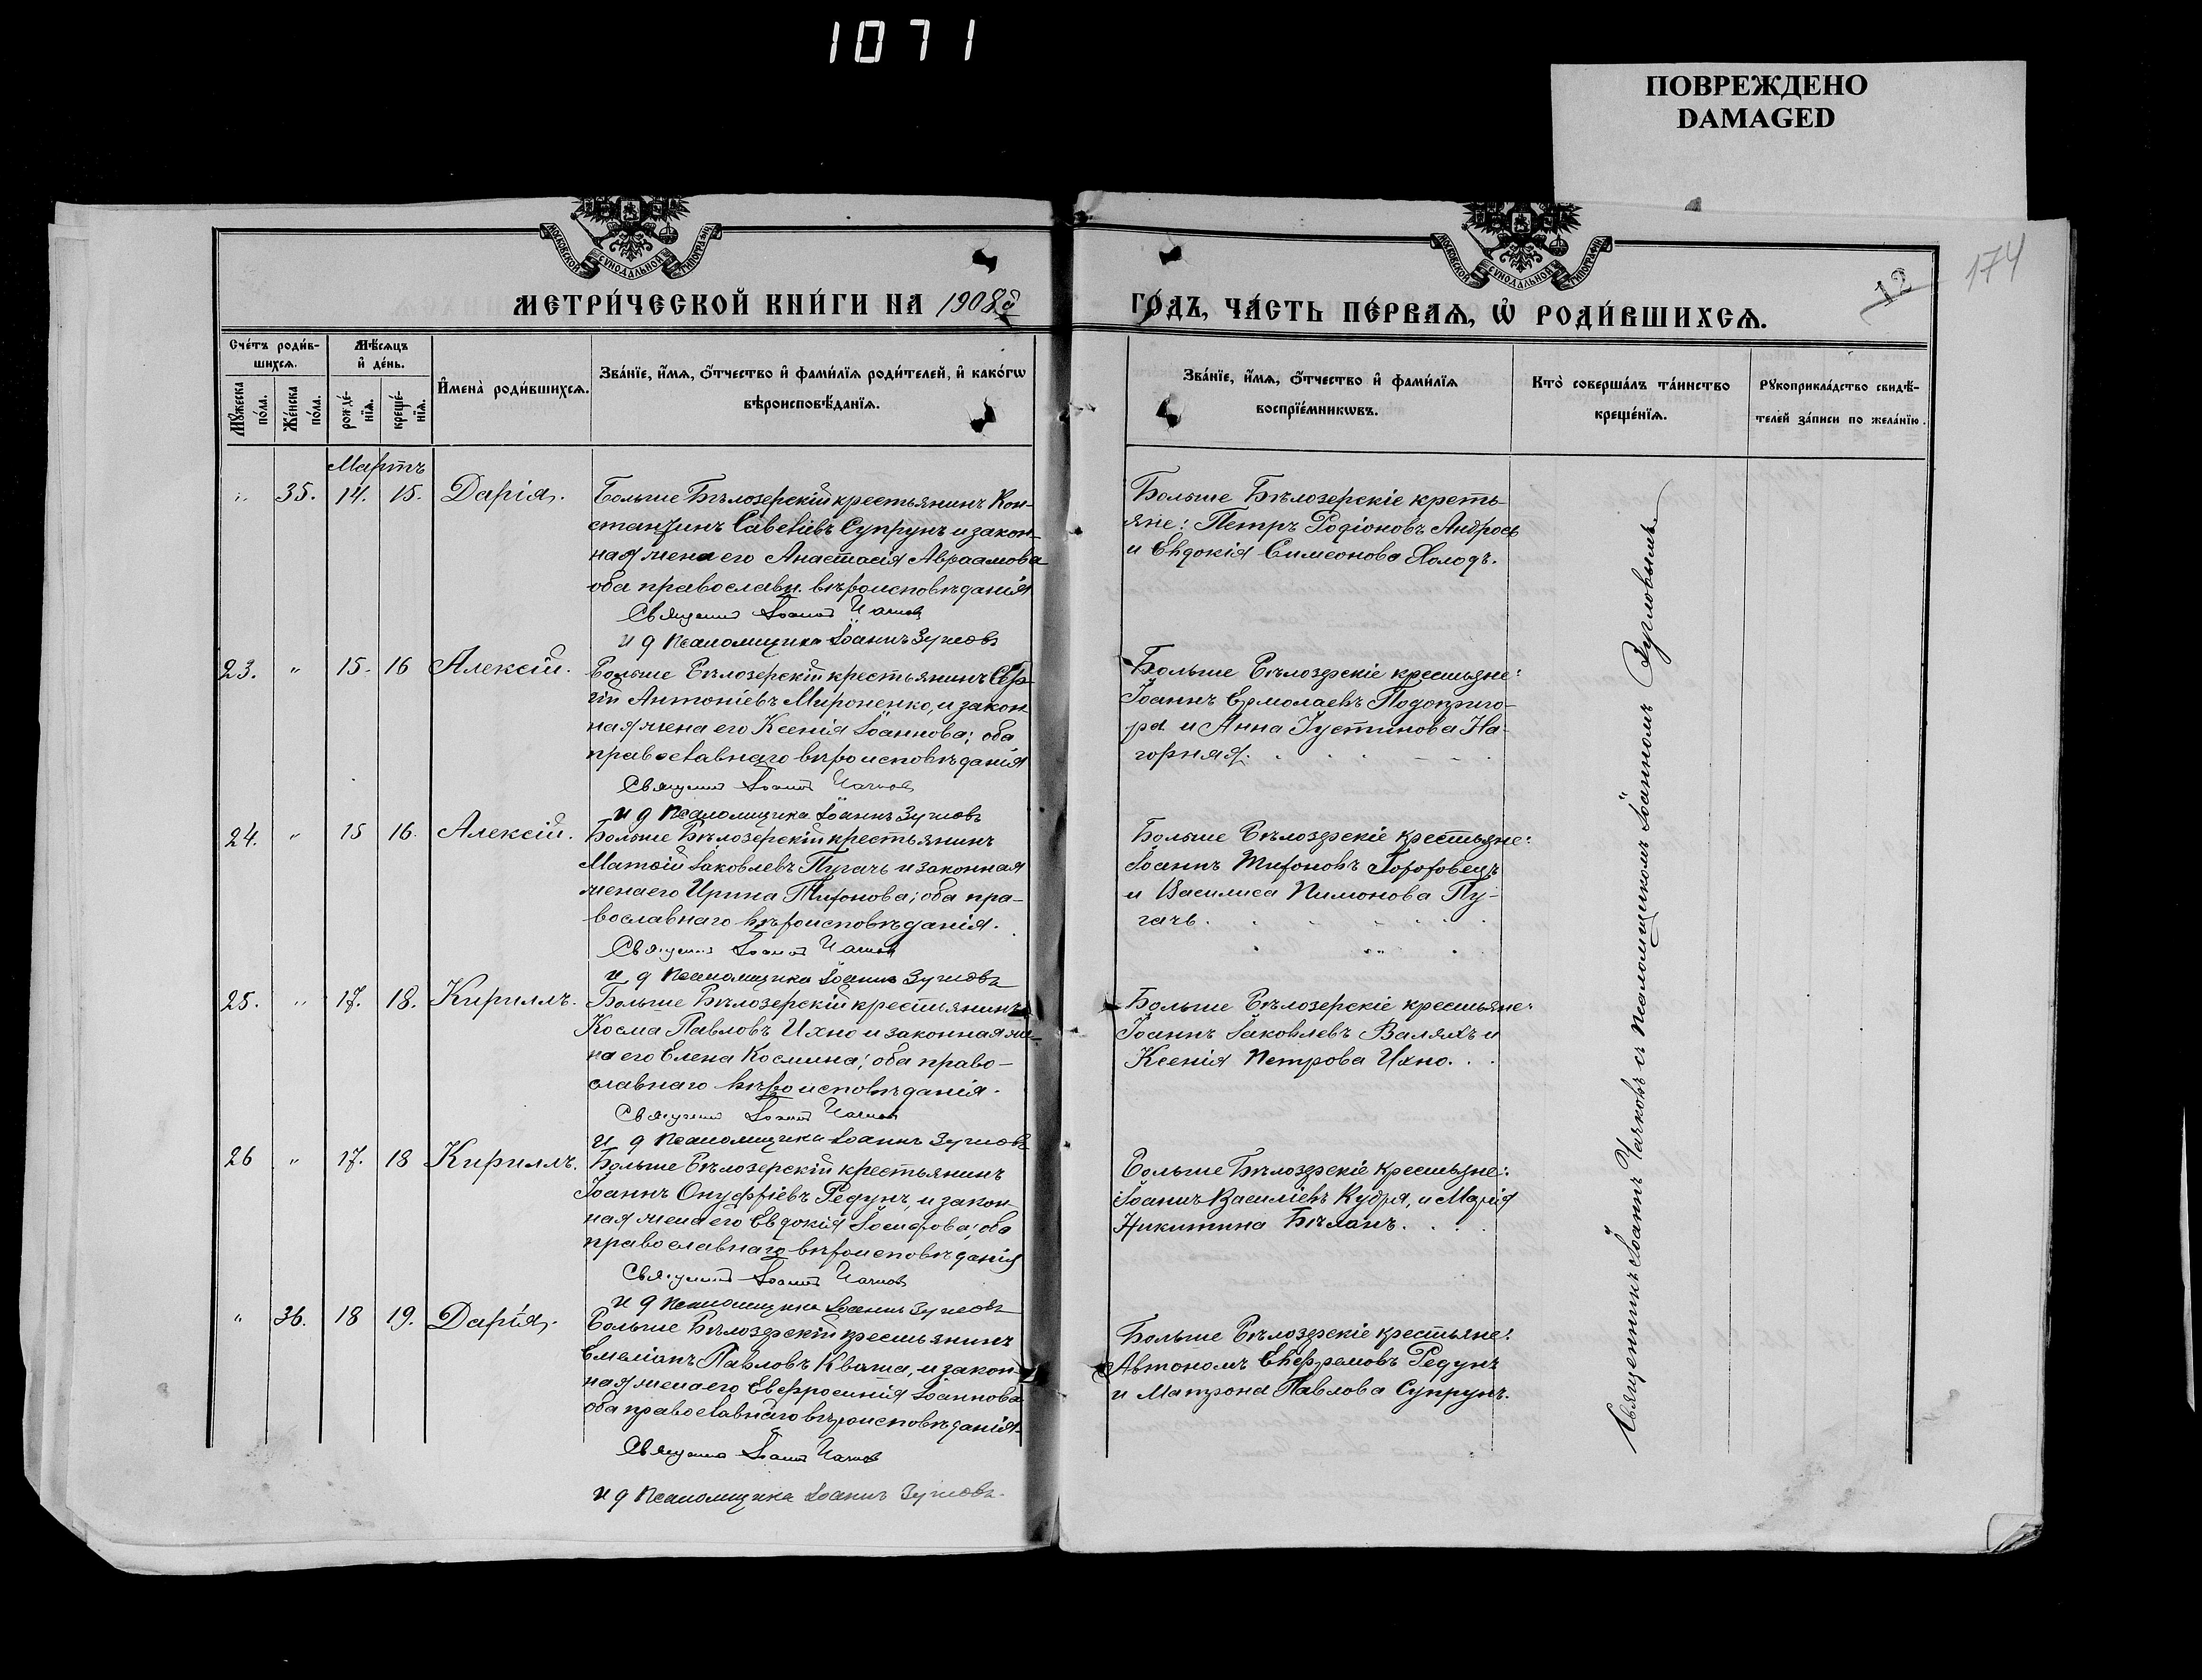 1071
ПОВРЕЖДЕНО
DAMAGED
174
12
МОСКОВСКОЙ СѴНОДАЛЬНОЙ ТИПОГРАФІИ
МОСКОВСКОЙ СѴНОДАЛЬНОЙ ТИПОГРАФІИ
МЕТРИ́ЧЕСКОЙ КНИ́ГИ НА 1908й
ГО́ДЪ, ЧА́СТЬ ПЕ́РВАѦ, Ѡ҆ РОДИ́ВШИХСѦ.
Сче́тъ роди́в-
шихсѧ.
Мѣ́сѧцъ
и҆ де́нь.
Мꙋ́жеска по́ла.
Же́нска по́ла.
рожде́-нїѧ.
креще́-нїѧ.
И҆мена̀ роди́вшихсѧ.
Зва́нїе, и҆́мѧ, ѻ҆́тчество и҆ фами́лїѧ роди́телей, и҆ како́гѡ
вѣроисповѣ́данїѧ.
Зва́нїе, и҆́мѧ, ѻ҆́тчество и҆ фами́лїѧ
воспрїе́мникѡвъ.
Кто̀ соверша́лъ та́инство
креще́нїѧ.
Рꙋкоприкла́дство свидѣ́-
телей за́писи по жела́нїю.
Мартъ
" 35. 14. 15. Дарія.
Больше Бѣлозерскій крестьянинъ Кон-
стантинъ Савеліевъ Супрунъ и закон-
ная жена его Анастасія Авраамова
оба православн. вѣроисповѣданія
Священникъ Іоаннъ Чачковъ
и д псаломщика Іоаннъ Зугловъ
Больше Бѣлозерскіе кресть-
яне: Петръ Родіоновъ Андрось
и Евдокія Симеонова Холодъ.
23. " 15. 16 Алексій.
Больше Бѣлозерскій крестьянинъ Сер-
гій Антоніевъ Мироненко, и закон
ная жена его Ксенія Іоаннова; оба
православнаго вѣроисповѣданія
Священникъ Іоаннъ Чачковъ
и д псаломщика Іоаннъ Зугловъ
Больше Бѣлозерскіе крестьяне:
Іоаннъ Ермолаевъ Подоприго-
ра и Анна Іустинова На-
горная.
24. " 15 16. Алексій.
Больше Бѣлозерскій крестьянинъ
Матѳій Іаковлевъ Пугачь и законная
жена его Ирина Тифонова; оба пра-
вославнаго вѣроисповѣданія.
Священникъ Іоаннъ Чачковъ
и д псаломщика Іоаннъ Зугловъ
Больше Бѣлозерскіе крестьяне:
Іоаннъ Тифоновъ Гороховецъ
и Василиса Пимонова Пу-
гачь.
25. " 17. 18. Кириллъ.
Больше Бѣлозерскій крестьянинъ
Косма Павловъ Ихно и законная же-
на его Елена Космина; оба право-
славнаго вѣроисповѣданія.
Священникъ Іоаннъ Чачковъ
и д псаломщика Іоаннъ Зугловъ
Больше Бѣлозерскіе крестьяне:
Іоаннъ Іаковлевъ Валяхъ и
Ксенія Петрова Ихно.
26 " 17. 18 Кириллъ.
Больше Бѣлозерскій крестьянинъ
Іоаннъ Онуфріевъ Редунъ, и закон
ная жена его Евдокія Іосифова; оба
православнаго вѣроисповѣданія
Священникъ Іоаннъ Чачковъ
и д псаломщика Іоаннъ Зугловъ
Больше Бѣлозерскіе крестьяне:
Іоаннъ Василіевъ Кудря, и Марія
Никитина Бѣланъ.
" 36. 18 19. Дарія.
Больше Бѣлозерскій крестьянинъ
Емеліанъ Павловъ Кваша, и закон
ная жена его Евфросинія Іоаннова
оба православнаго вѣроисповѣданія.
Священникъ Іоаннъ Чачковъ
и д псаломщика Іоаннъ Зугловъ.
Больше Бѣлозерскіе крестьяне:
Автономъ Евфремовъ Редунъ
и Матрона Павлова Супрунъ.
Священникъ Іоаннъ Чачковъ съ псаломщикомъ Іоанномъ Зугловымъ